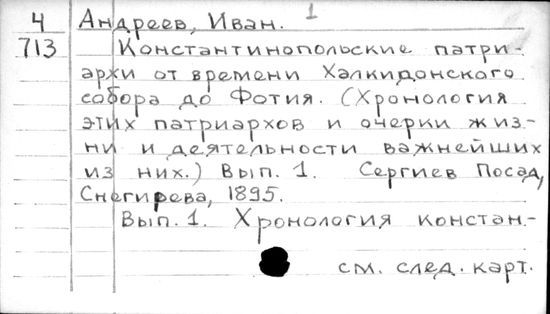 4 Андреев, Иван. 1
713 Константинопольские патри-
архи от времени Халкидонского
собора до Фотия. (Хронология
этих патриархов и очерки жиз-
ни и деятельности важнейших
из них.) Вып. 1. Сергиев Посад,
Снегирева, 1895.
Вып. 1. Хронология констан-
см. след. карт.